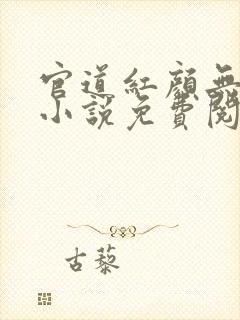 官道紅顏無
小說免費閱
古藜